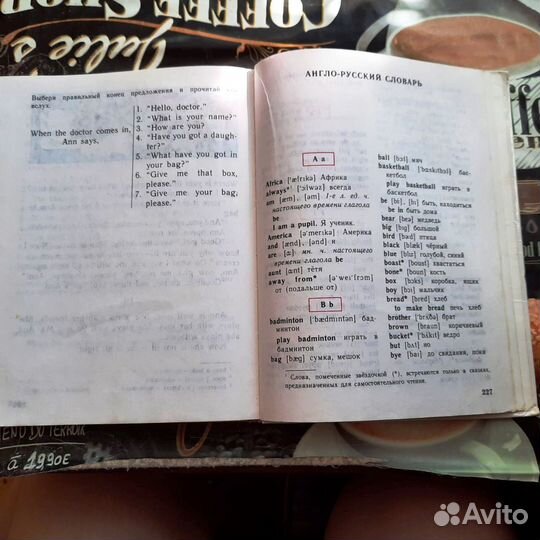 COFFEE SHOP
Julie's
Выбери правильный конец предложения и прочитай
вслух.
When the doctor comes in,
Ann says,
1. "Hello, doctor."
2. "What is your name?"
3. "How are you?
4. "Have you got a daugh-
ter?"
5. "What have you got in
your bag?"
6. "Give me that box,
please."
7. "Give me your bag,
please."
АНГЛО-РУССКИЙ СЛОВАРЬ
A a
Africa ['æfrɪkə] Африка
always* ['ɔ:lwəz] всегда
am [æm] (əm) 1-е л. ед. ч.
настоящего времени глагола
be
I am a pupil. Я ученик.
America [ə'merɪkə] Америка
and [ænd], [ənd] и
are [ɑ:] мн. ч. настоящего
времени глагола be
aunt [ɑ:nt] тётя
away from* [ə'weɪ'frɔm]
от (подальше от)
B b
badminton ['bædmɪntən] бад-
минтон
play badminton играть в
бадминтон
bag [bæg] сумка, мешок
ball [bɔ:l] мяч
basketball ['bɑ:skɪtbɔ:l] бас-
кетбол
play basketball играть в
баскетбол
be [bi:], [bɪ] быть, находиться
be in быть дома
bear [bɛə] медведь
big [bɪg] большой
bird [bə:d] птица
black [blæk] чёрный
blue [blu:] голубой, синий
boast* [boust] хвастаться
bone* [boun] кость
box [bɔks] коробка, ящик
boy [bɔɪ] мальчик
bread* [bred] хлеб
to make bread печь хлеб
brother ['brʌðə] брат
brown [braun] коричневый
bucket* ['bʌkɪt] ведро
but [bʌt] но
bye [baɪ] до свидания, пока
¹ Слова, помеченные звёздочкой (*), встречаются только в сказках,
предназначенных для самостоятельного чтения.
227
MENU DU TERROIR
à 19,90E
Avito